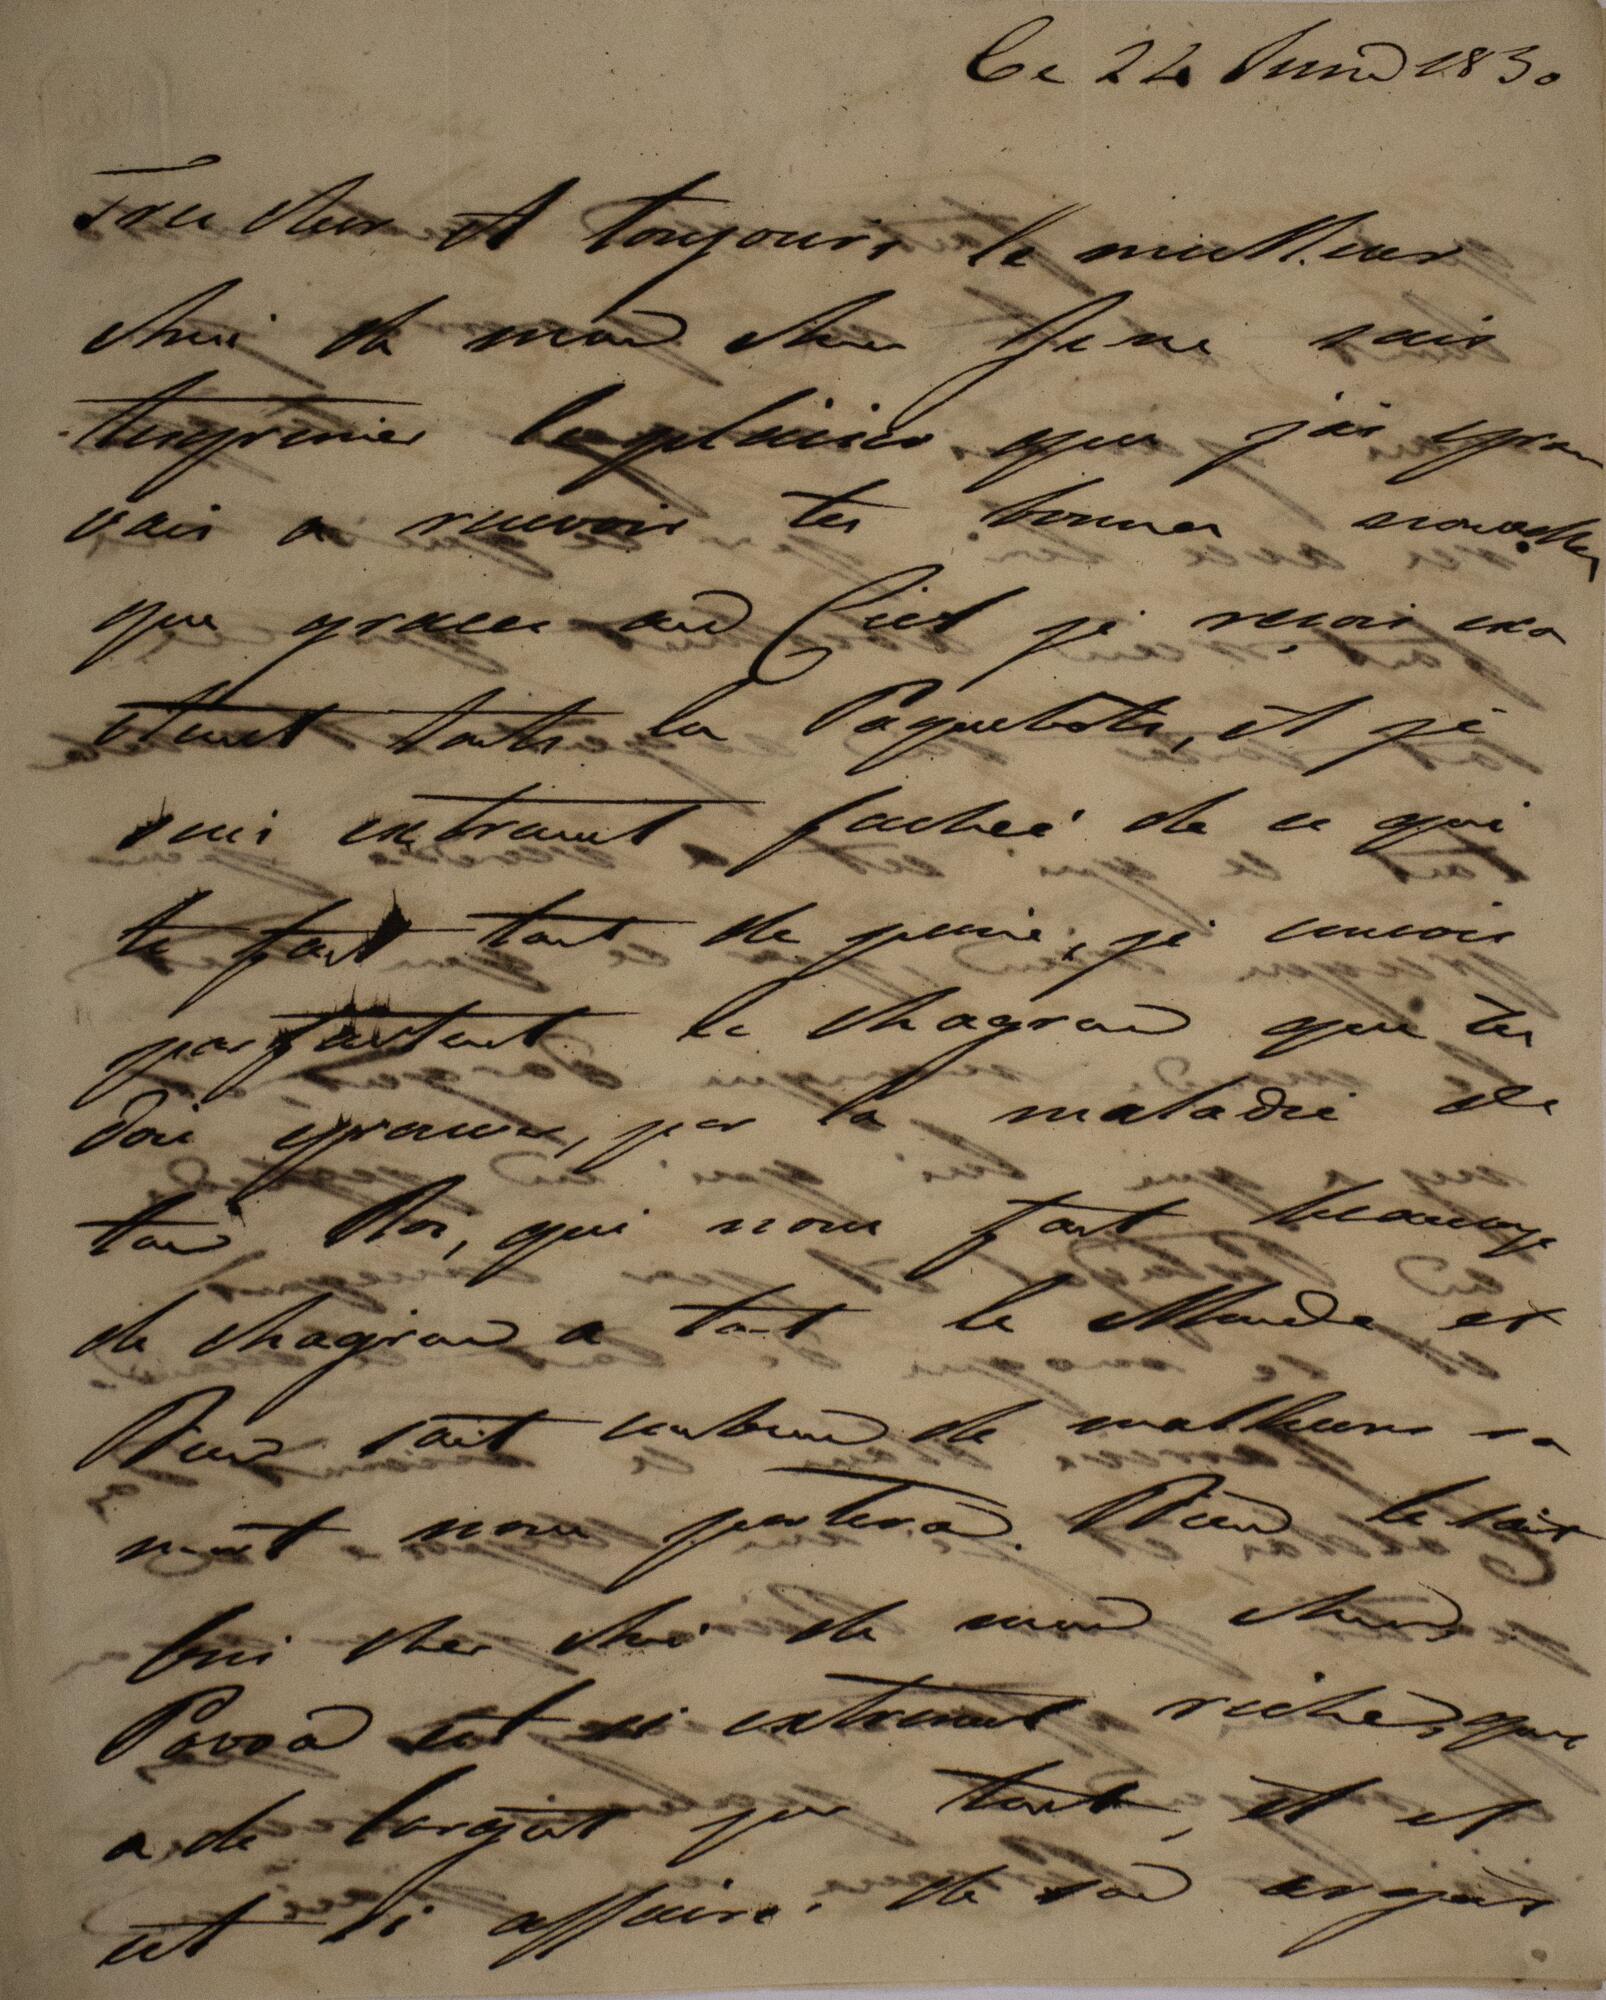 Ce 22 Juin 1830
Tres cher et toujours le meilleur
Ami de mon Ame Je ne sais
t'exprimer le plaisir que j'ai eprou
vais a recevoir tes bonnes nouvelles
que graces au Ciel je reçois exa
ctement touts les Paquebots, et je
suis extremt fachée de ce qui
te fait tant de peine, je concois
parfaitemt le chagrin que tu
dois eprouver, par la maladie de
ton Roi, qui nous fait beaucoup
de chagrin a tout le Monde et
Dieu sait combien de malheurs sa
mort nous portera. Dieu le sait
Oui cher Ami de mon Ame,
est si extremt riche, que
a de l'argent par tout, et et
est si affaire. de son argent